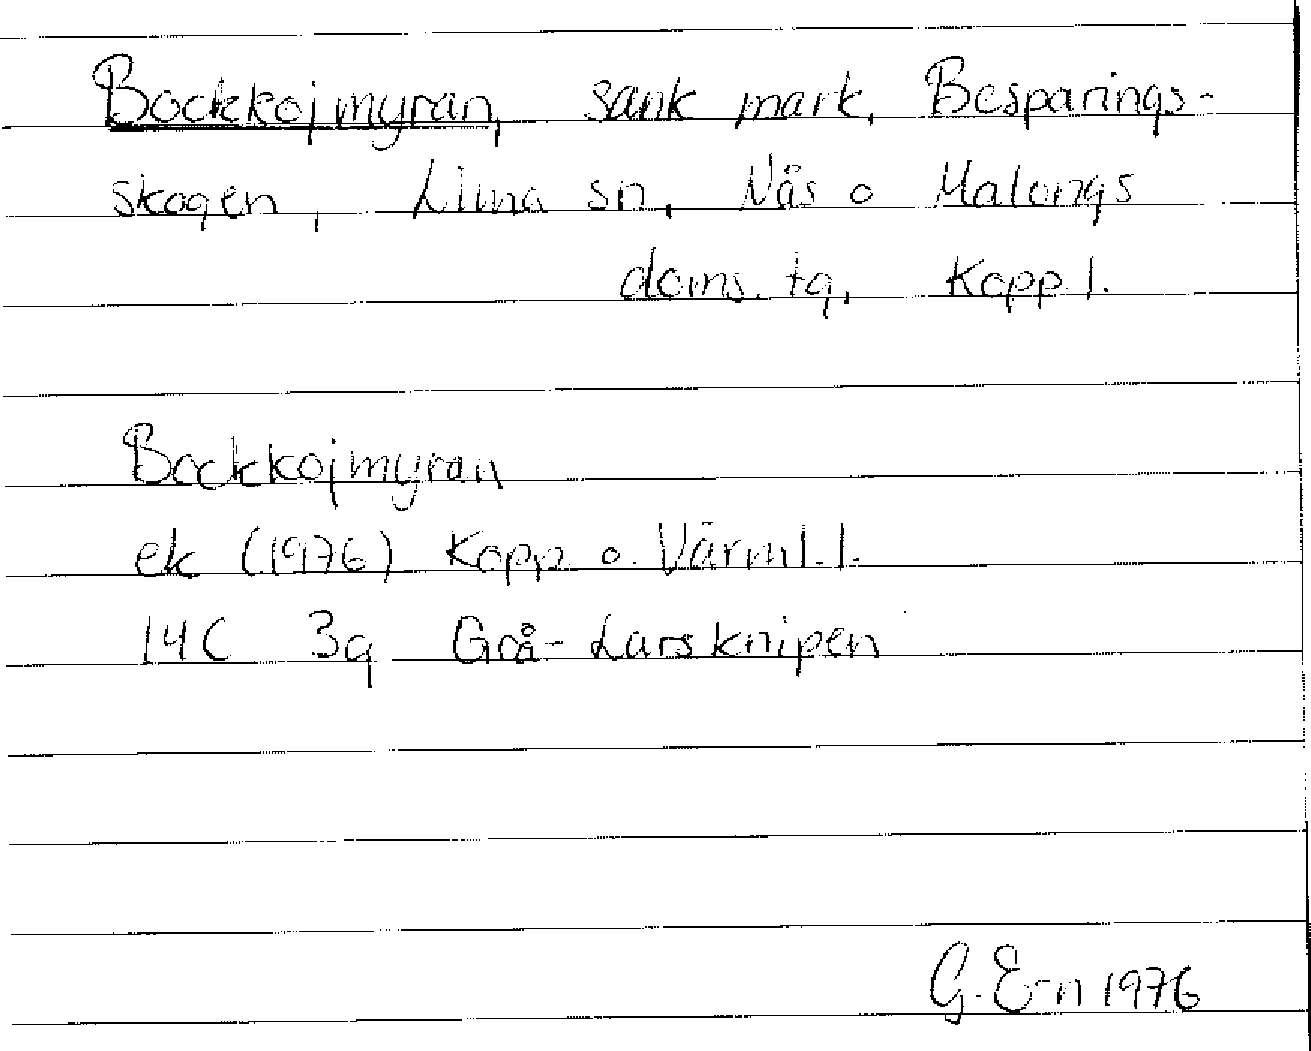 Bockkojmyran, sank mark, Besparings-
skogen, Lima sn, Nås o Malungs
doms. tg, Kopp. l.
Bockkojmyran
ek (1976) Kopp o. Värml. l.
14C 3g Grå-Larsknipen
G. E-n 1976